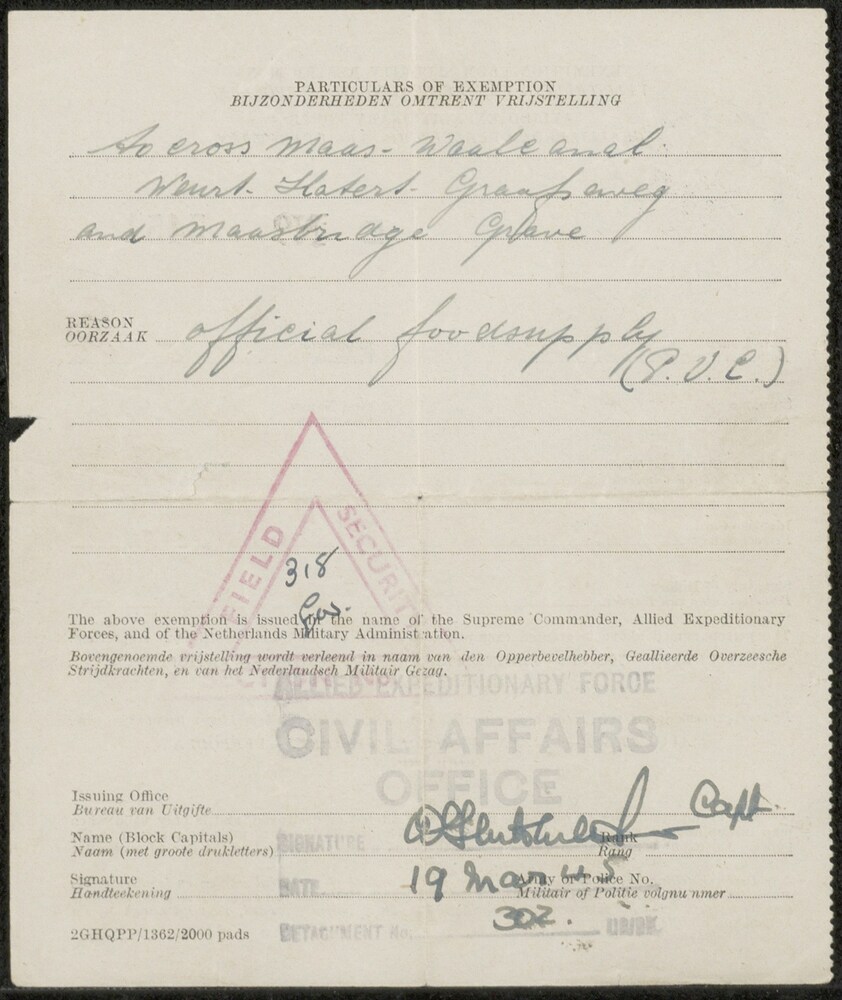 PARTICULARS OF EXEMPTION
BIJZONDERHEDEN OMTRENT VRIJSTELLING
to cross Maas-Waalcanal
Weurt-Hatert-Graafseweg
and Maasbridge Grave
REASON
OORZAAK
official foodsupply
(P.V.C.)
FIELD
SECURITY
318
The above exemption is issued in the name of the Supreme Commander, Allied Expeditionary
Forces, and of the Netherlands Military Administ ation.
Bovengenoemde vrijstelling wordt verleend in naam van den Opperbevelhebber, Geallieerde Overzeesche
Strijdkrachten, en van het Nederlandsch Militair Gezag.
ALLIED EXPEDITIONARY FORCE
CIVIL AFFAIRS
OFFICE
Issuing Office
Bureau van Uitgifte
Capt.
Name (Block Capitals)
Naam (met groote drukletters)
SIGNATURE
Rank
Rang
Signature
Handteekening
DATE
19 Mar 45
Army or Police No.
Militair of Politie volgnu nmer
2GHQPP/1362/2000 pads
DETACHMENT No.
302.